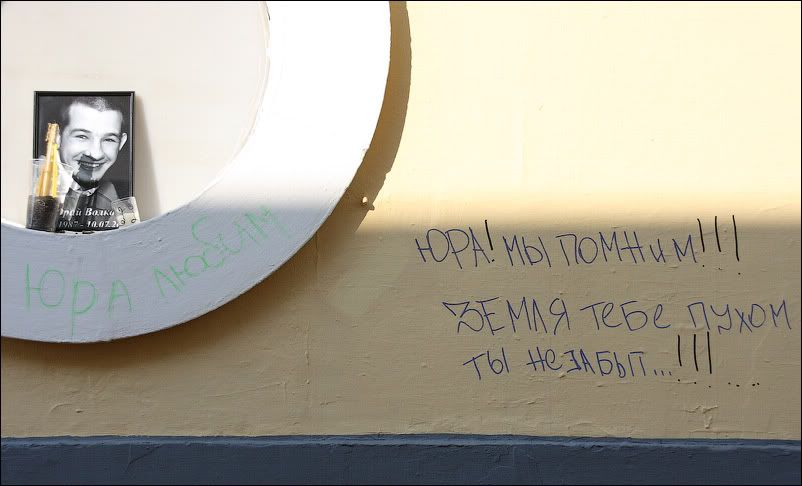 1987- 10.07.2
ЮРА ЛЮБИМ
ЮРА! МЫ ПОМНИМ!!!
ЗЕМЛЯ ТЕБЕ ПУХОМ
ТЫ НЕЗАБЫТ...!!!...